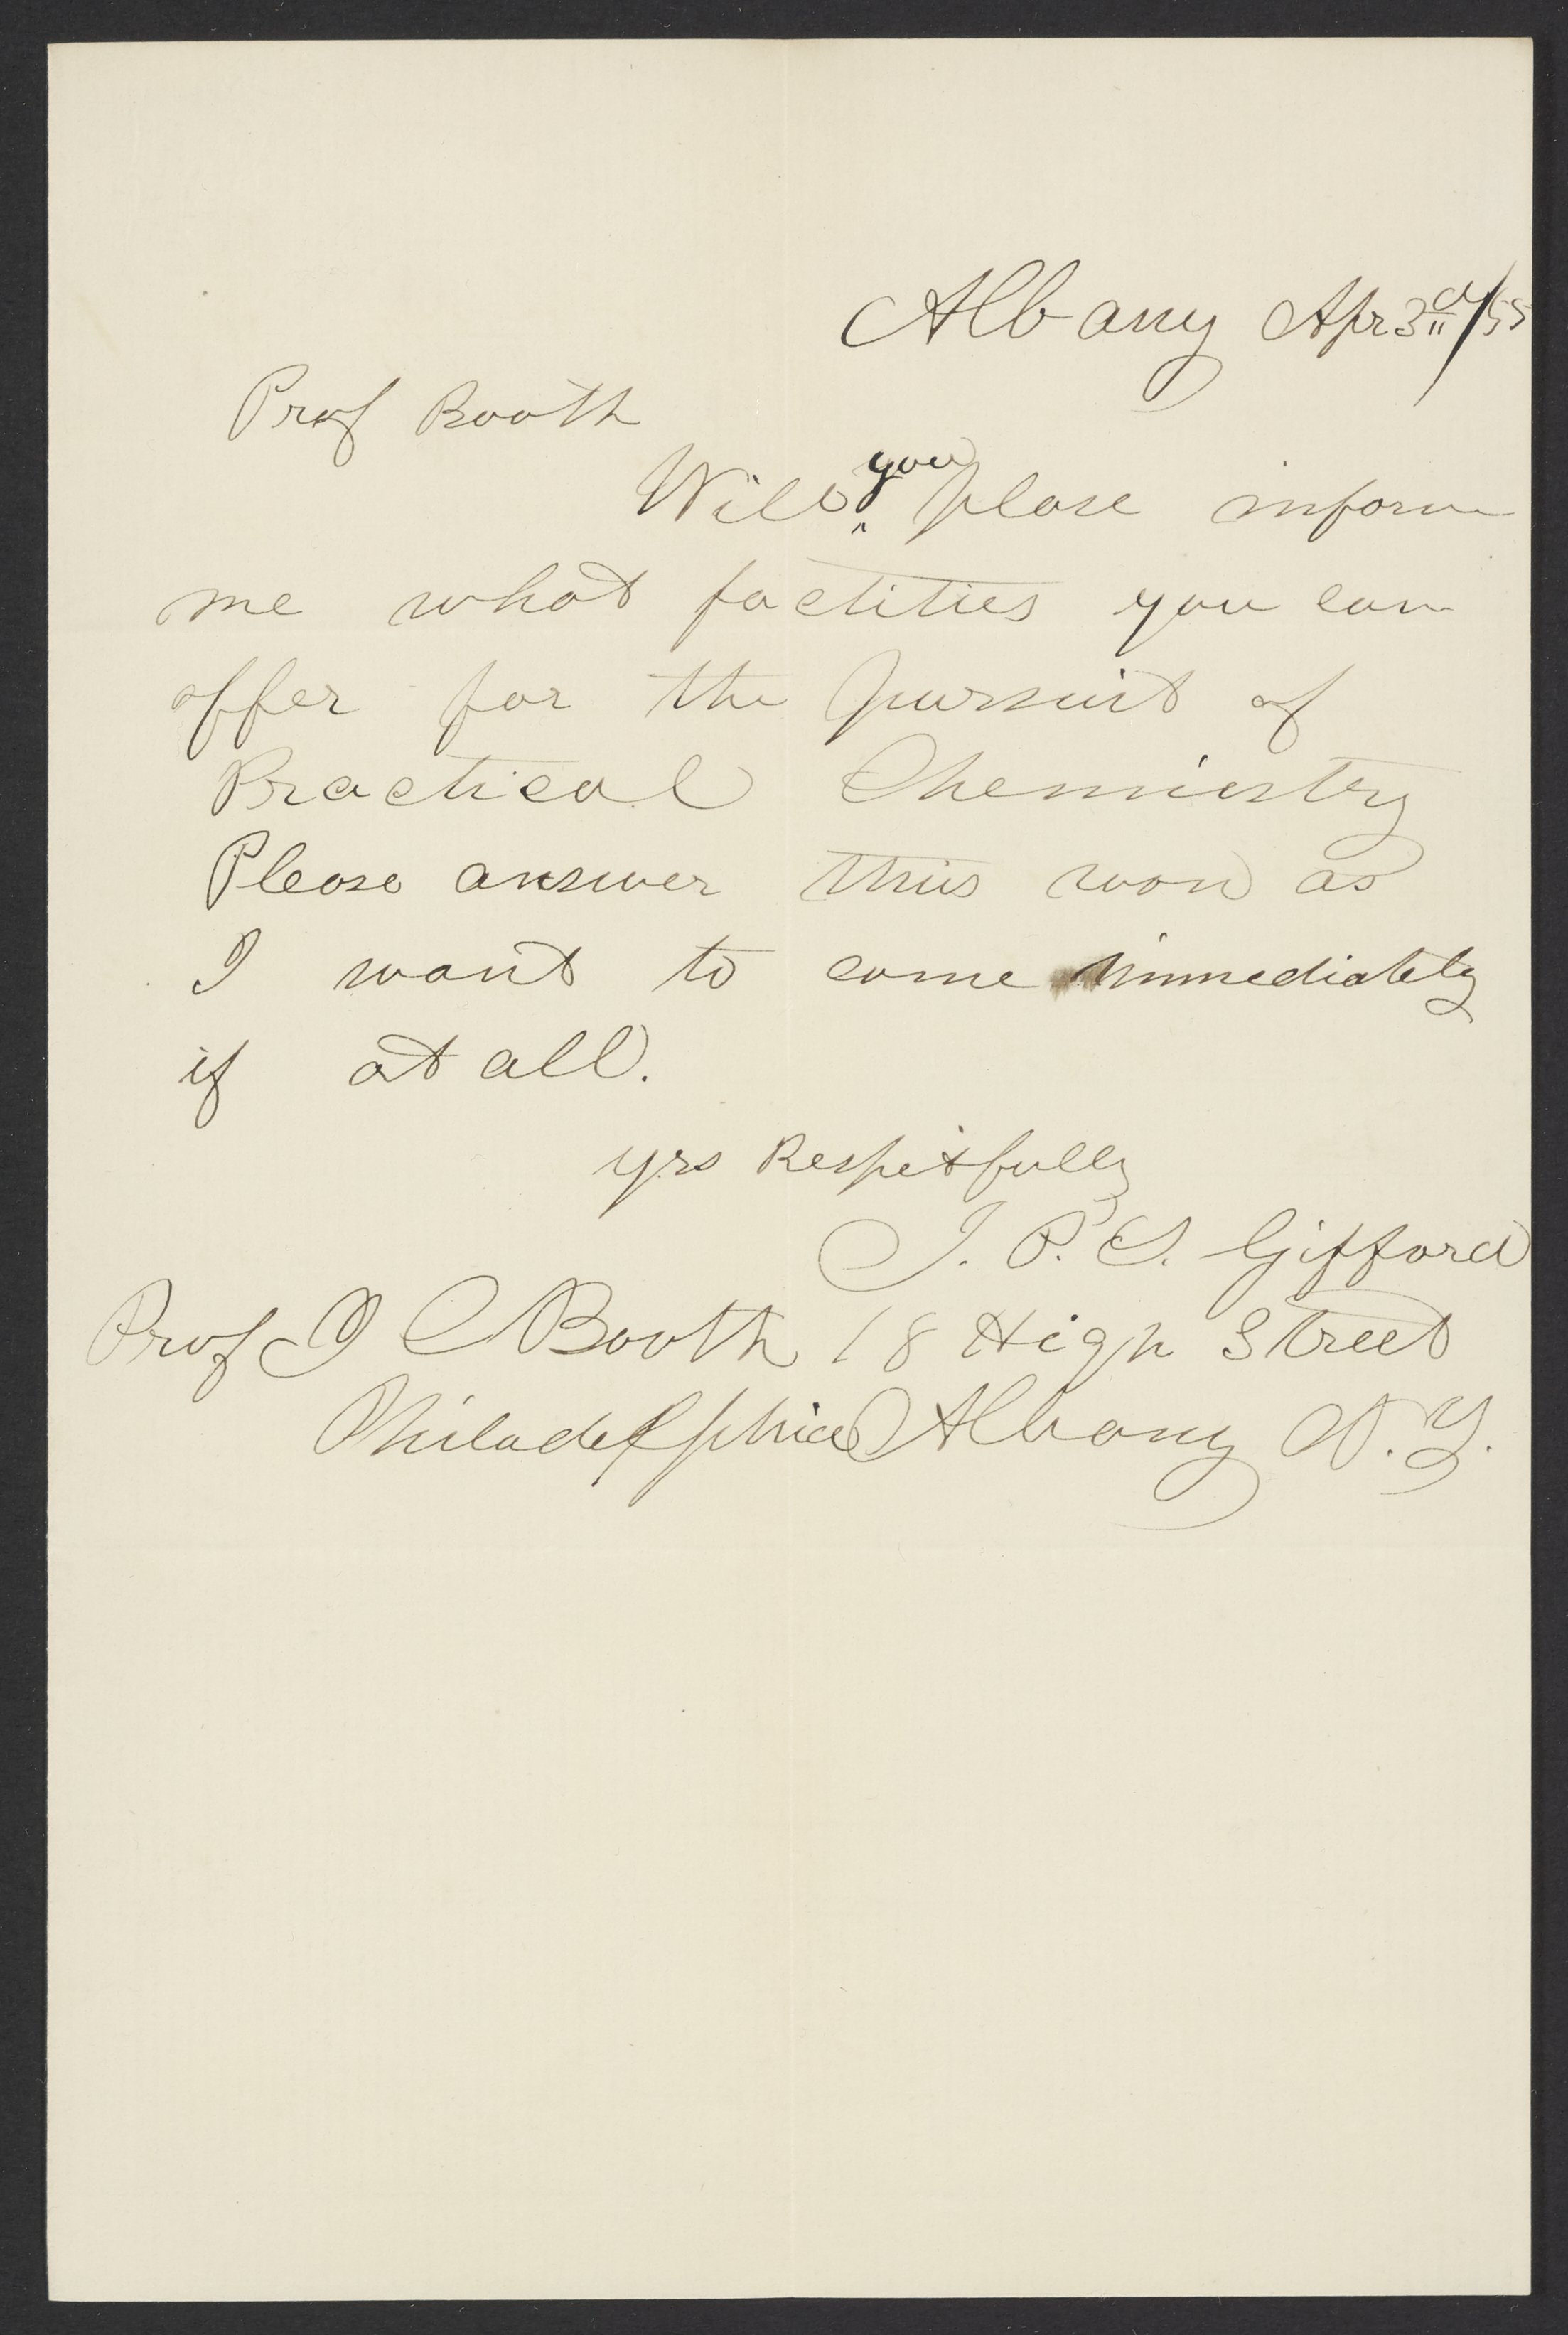 Albany Apr 3d/55
Prof Booth
Will you plase inform
me what faclities you can
offer for the pursuit of
Practical Chemistry
Please answer this soon as
I want to come immediately
if at all.
yrs Respetfully
J. P. S. Gifford
Prof J C Booth 18 High Street
Philadelphia Albany N.Y.